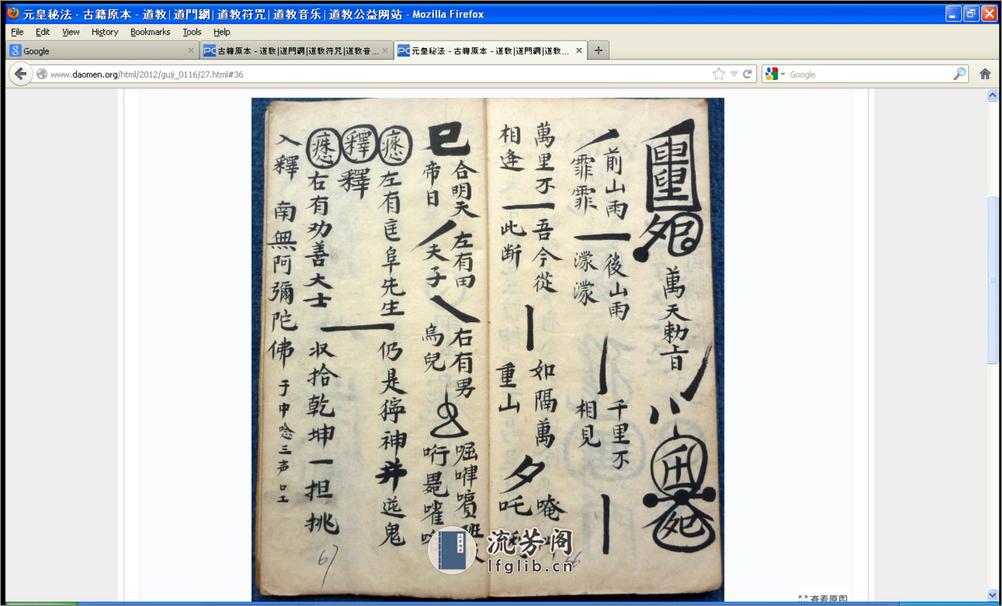 元皇秘法 - 古籍原本 - 道教|道門網|道教符咒|道教音乐|道教公益网站 - Mozilla Firefox
File Edit View History Bookmarks Tools Help
Google
古籍原本 - 道教|道門網|道教符咒|道教音...
元皇秘法 - 古籍原本 - 道教|道門網|道教...
www.daomen.org/html/2012/guji_0116/27.html#36
Google
萬天勅旨
前山雨 後山雨 千里不
霏霏 濛濛 相見
萬里不 吾今從 如隔萬 唵
相逢 此断 重山 吒
合明天 左有田 右有男
帝日 夫子 烏兒
左有匡阜先生 仍是獰神并巡鬼
釋 釋
右有劝善大士 収拾乾坤一担挑
入釋 南無阿彌陀佛 于中唸三声
67
66
流芳阁
lfglib.cn
查看原图